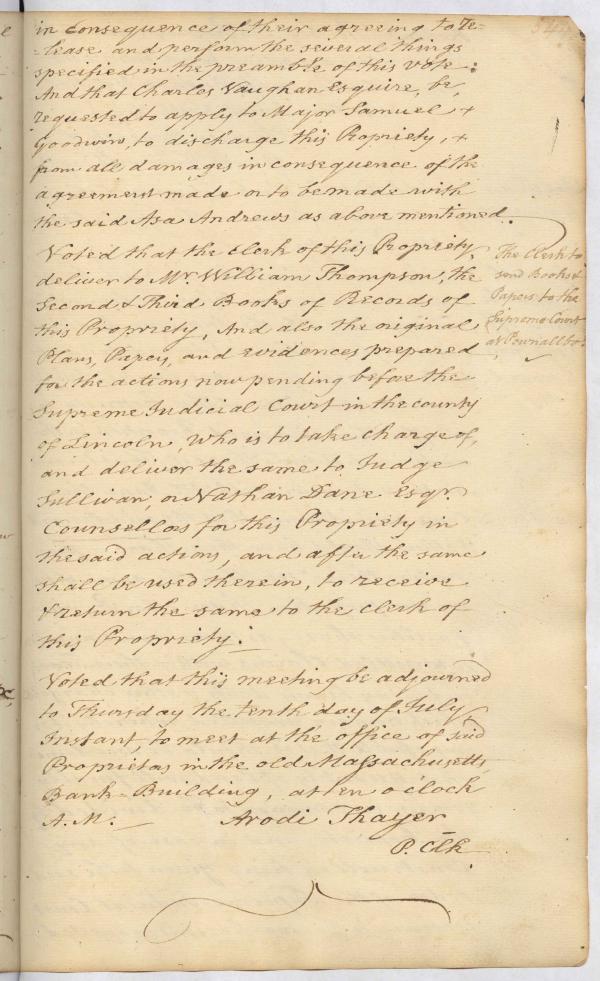 in consequence of their agreeing to re=
=lease and perform the several things
specified in the preamble of this vote:
And that Charles Vaughan Esquire, be,
requested to apply to Major Samuel +
Goodwin, to discharge this Propriety, +
from all damages in consequence of the
agreement made or to be made with
the said Asa Andrews as above mentioned.
Voted that the clerk of this Propriety,
deliver to Mr. William Thompson, the
Second & Third Books of Records of
this Propriety, And also the original
Plans, Papers, and evidences prepared
for the actions now pending before the
Supreme Judicial Court in the county
of Lincoln, Who is to take charge of,
and deliver the same to Judge
Sullivan, or Nathan Dane Esqr.
Counsellors for this Propriety in
the said actions, and after the same
shall be used therein, to receive
& return the same to the clerk of
this Propriety.
The Clerk to
send Books &
Papers to the
Supreme Court
at Pownallbo:
Voted that this meeting be adjourned
to Thursday the tenth day of July
Instant, to meet at the office of said
Proprietors in the old Massachusetts
Bank-Building, at ten o'clock
A.M.
Arodi Thayer
P. Clk